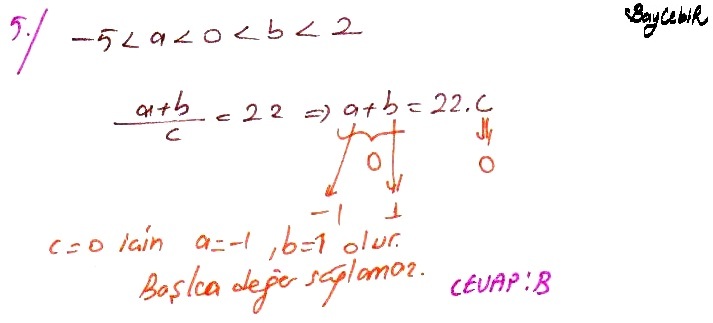 BayCebiR
5./ -5 < a < 0 < b < 2
a+b/c = 22 => a+b = 22.c
0 0
-1 1
c=0 için a=-1, b=1 olur.
Başka değer sağlamaz. CEVAP:B